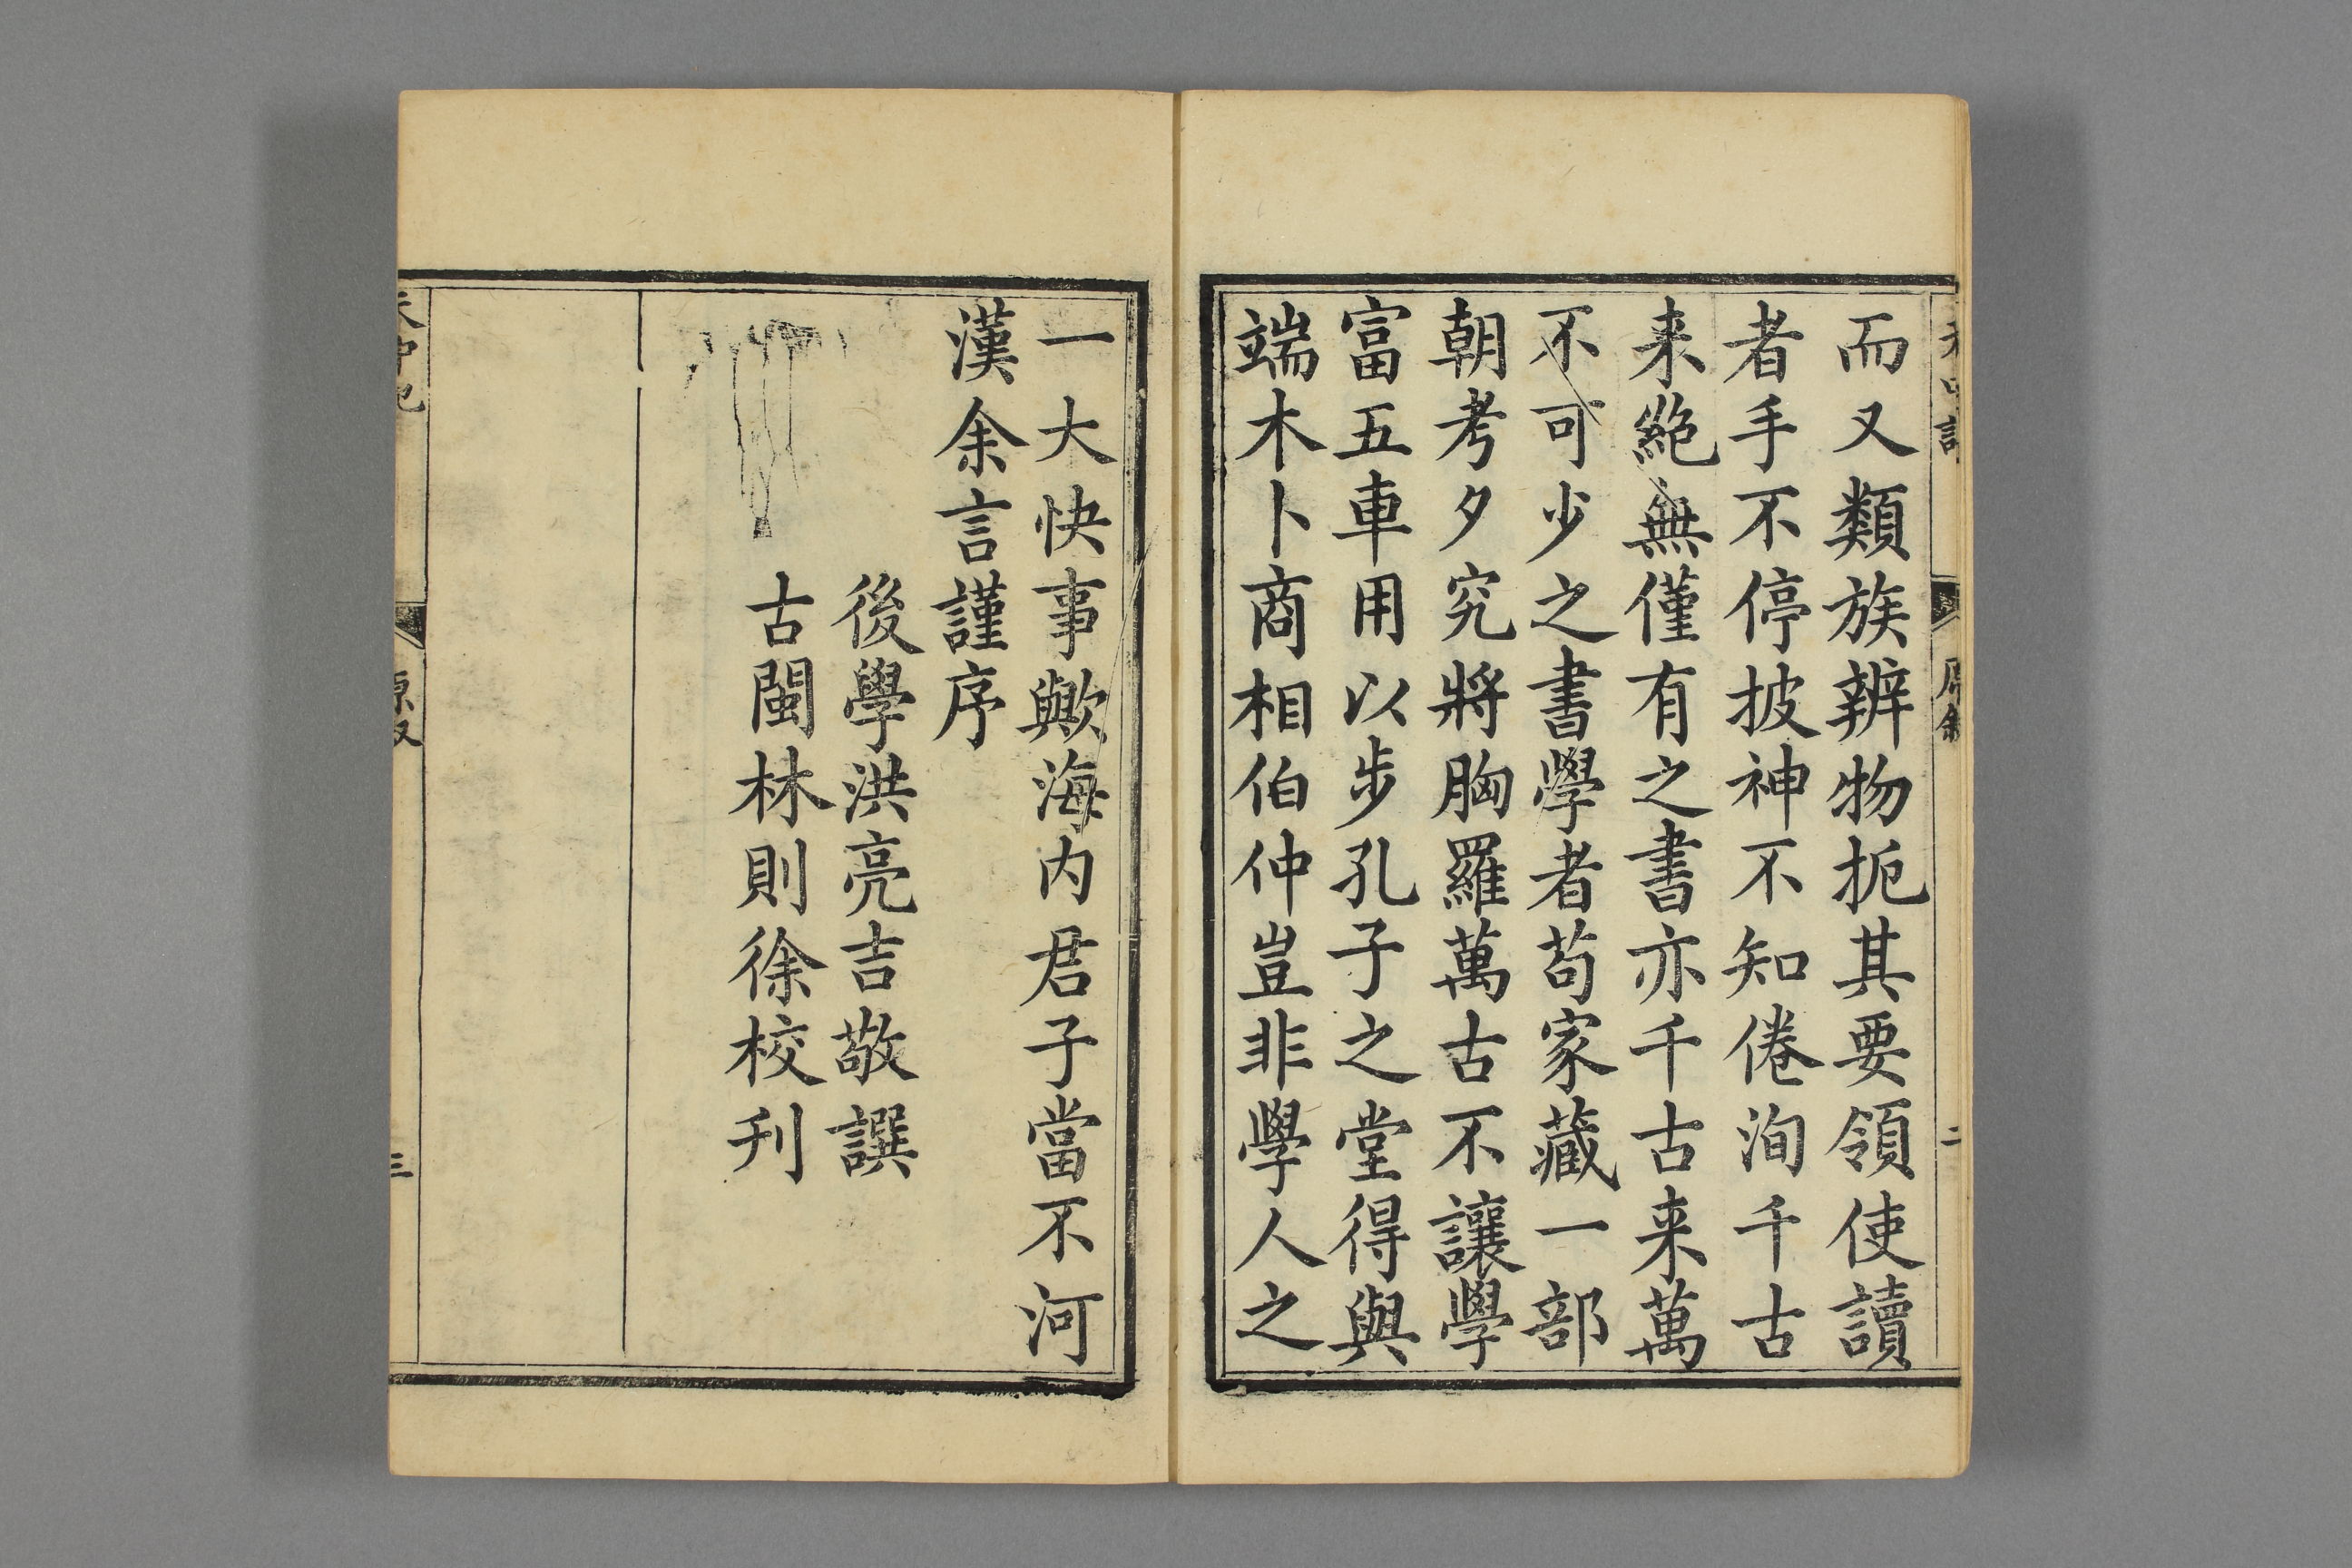 而又類族辨物扼其要領使讀
者手不停披神不知倦洵千古
来絶無僅有之書亦千古来萬
不可少之書學者苟家藏一部
朝考夕究將胸羅萬古不讓學
富五車用以步孔子之堂得與
端木卜商相伯仲豈非學人之
一大快事歟海内君子當不河
漢余言謹序
後學洪亮吉敬譔
古閩林則徐校刋
原叙
三